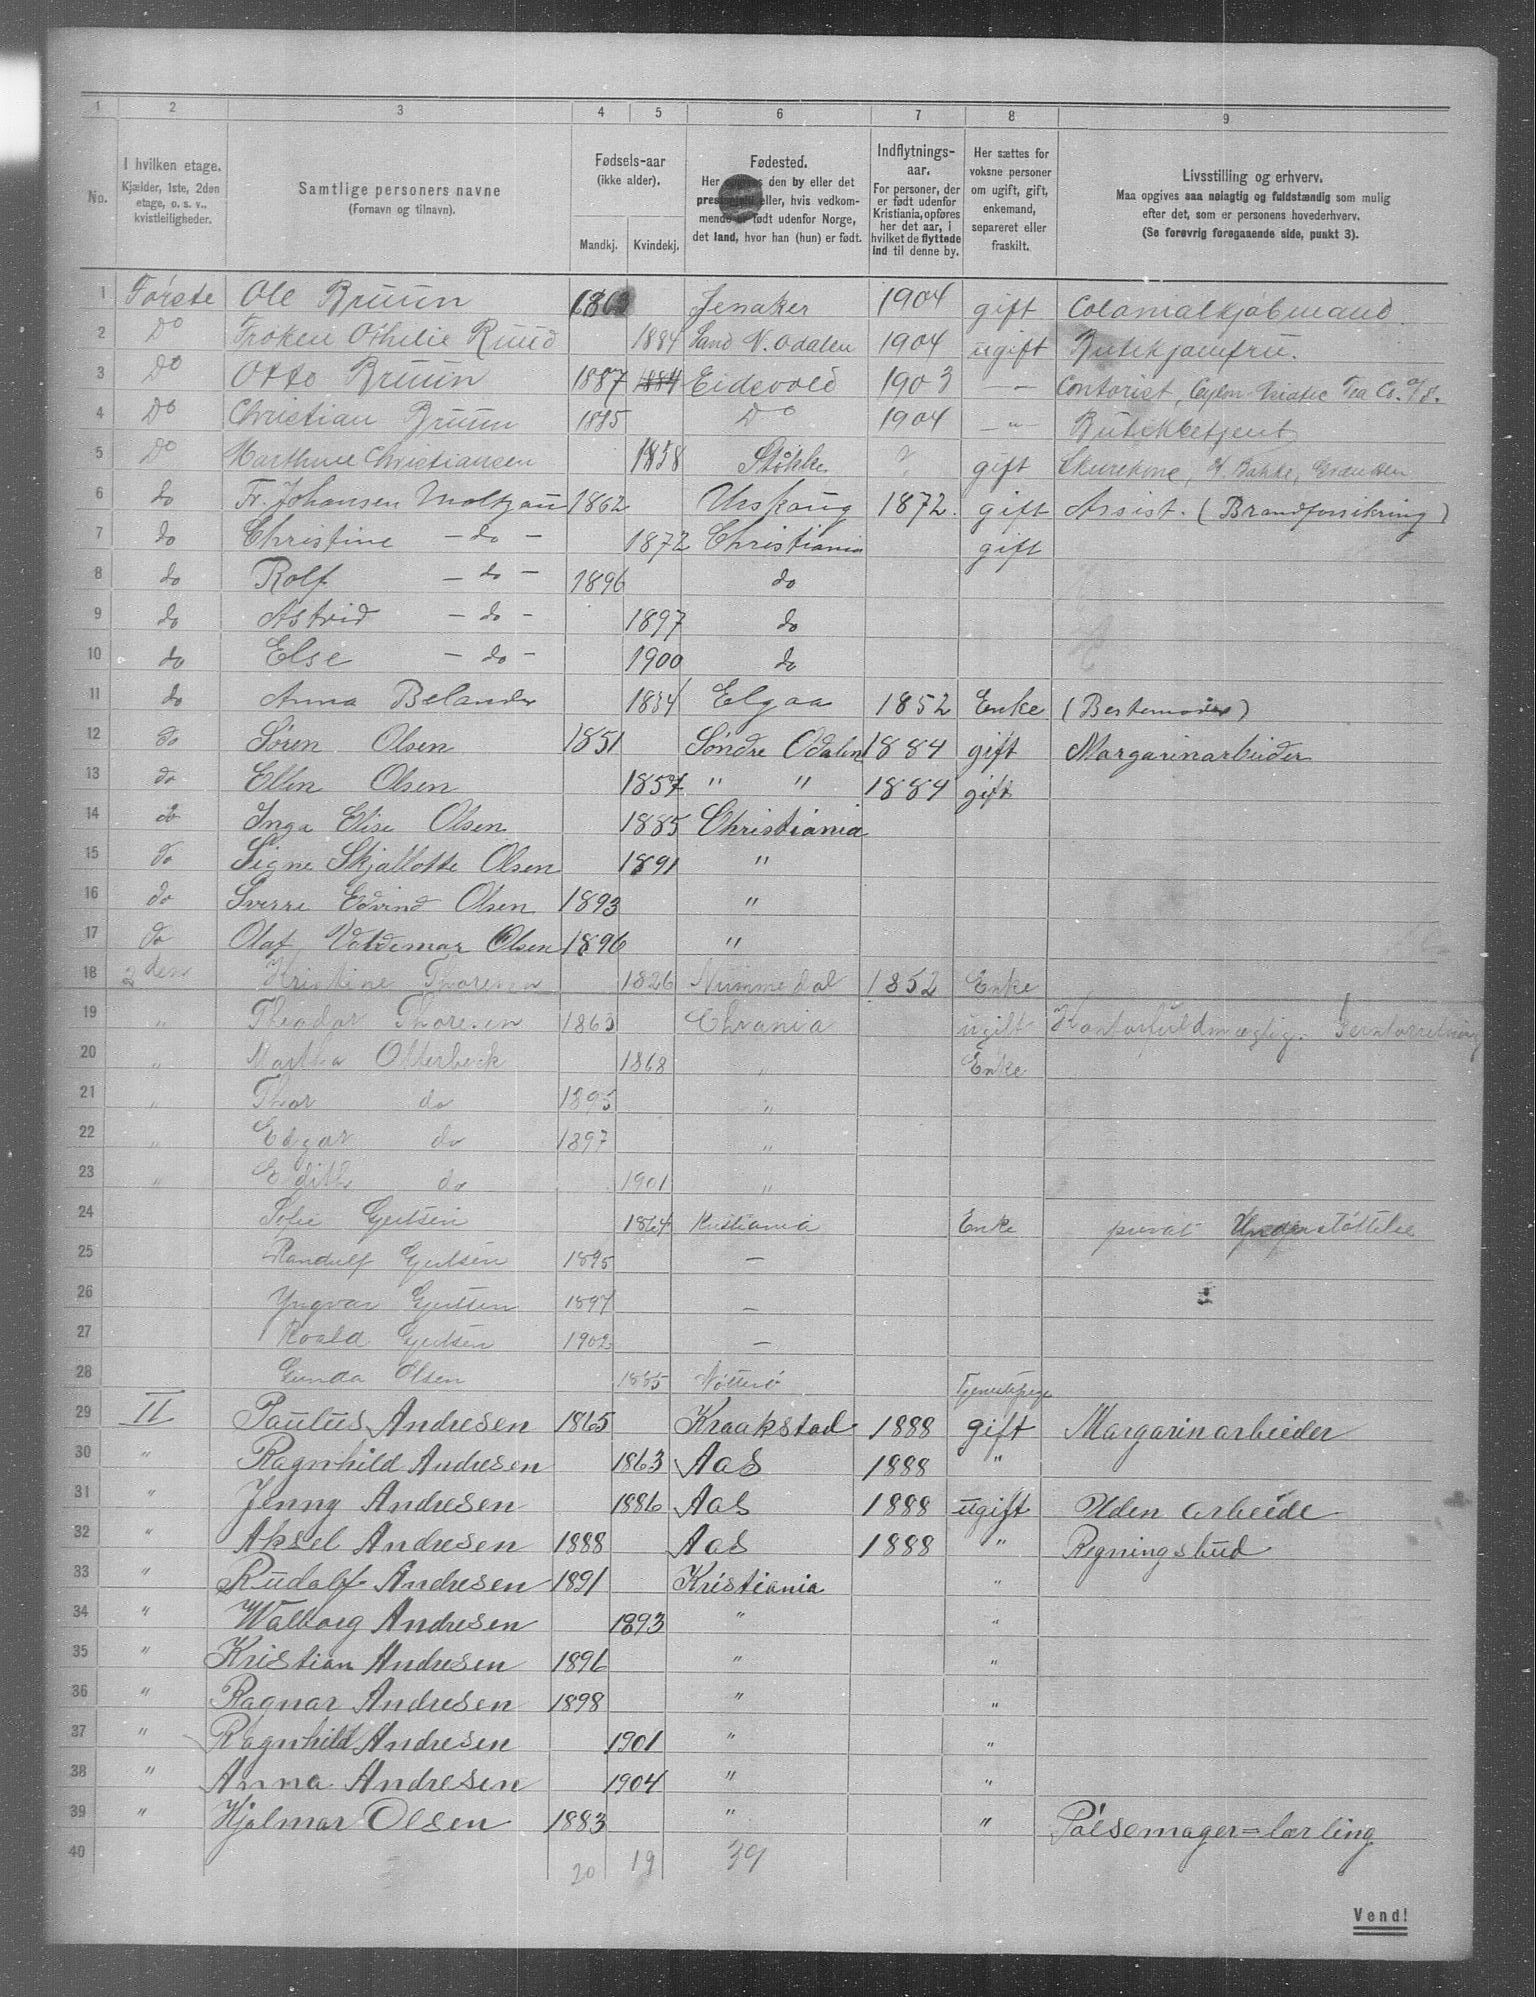 1 2 3 4 5 6 7 8 9
No. I hvilken etage. Kjælder, 1ste, 2den etage, o. s. v., kvistleiligheder. Samtlige personers navne (Fornavn og tilnavn). Fødsels-aar (ikke alder). Mandkj. Kvindekj. Fødested. Her opgives den by eller det præstegjeld eller, hvis vedkommende er født udenfor Norge, det land, hvor han (hun) er født. Indflytnings-aar. For personer, der er født udenfor Kristiania, opføres her det aar, i hvilket de flyttede ind til denne by. Her sættes for voksne personer om ugift, gift, enkemand, separeret eller fraskilt. Livsstilling og erhverv. Maa opgives saa nøiagtig og fuldstændig som mulig efter det, som er personens hovederhverv. (Se forøvrig foregaaende side, punkt 3).
1 Første Ole Bruun 1863 Jenaker 1904 gift Colonialkjøbmand
2 Do Frøken Othilie Ruud 1884 Sand N. Odalen 1904 ugift Butikjomfru.
3 Do Otto Bruun 1887 1884 Eidsvold 1903 — Contorist, Ceylon Tea Co. A/S.
4 Do Christian Bruun 1885 Do 1904 — " — Butikbetjent
5 Do Marthine Christiansen 1858 Stokke ? gift Skurekone,
6 do Fr. Johansen Moltzau 1862 Urskoug 1872. gift Assist. (Brandforsikring)
7 do Christine — do — 1872 Christiania gift
8 do Rolf — do — 1896 do
9 do Astrid — do — 1897 do
10 do Else — do — 1900 do
11 do Anna Belander 1834 Elgaa 1852 Enke (Bestemoder)
12 do Søren Olsen 1851 Søndre Odalen 1884 gift Margarinarbeider
13 do Ellen Olsen 1857 " " 1884 gift
14 do Inga Elise Olsen 1885 Christiania
15 do Signe Skjallotte Olsen 1891 "
16 do Sverre Edvind Olsen 1893 "
17 do Olaf Valdemar Olsen 1896 "
18 2den Kristine Thoresen 1826 Nummedal 1852 Enke
19 " Theodor Thoresen 1863 Chrania ugift Kontorfuldmægtig. Jernforretning
20 " Martha Otterbeck 1868 " Enke
21 " Thor do 1895 "
22 " Edgar do 1897 "
23 " Edith do 1901 "
24 Sofie Gjertsen 1864 Kristiania Enke privat Understøttelse
25 Randulf Gjertsen 1895 —
26 Yngvar Gjertsen 1897 —
27 Roald Gjertsen 1902 —
28 Gunda Olsen 1885 Nøtterø Tjenestepige
29 II Paulus Andresen 1865 Kraakstad 1888 gift Margarinarbeider
30 " Ragnhild Andresen 1863 Aas 1888 "
31 " Jenny Andresen 1886 Aas 1888 ugift Uden arbeide
32 " Aksel Andresen 1888 Aas 1888 " Regningsbud
33 " Rudolf Andresen 1891 Kristiania "
34 " Walborg Andresen 1893 " "
35 " Kristian Andresen 1896 " "
36 " Ragnar Andresen 1898 " "
37 " Ragnhild Andresen 1901 " "
38 " Anna Andresen 1904 " "
39 " Hjalmar Olsen 1883 " " Pølsemager=lærling
40 20 19 39
Vend!